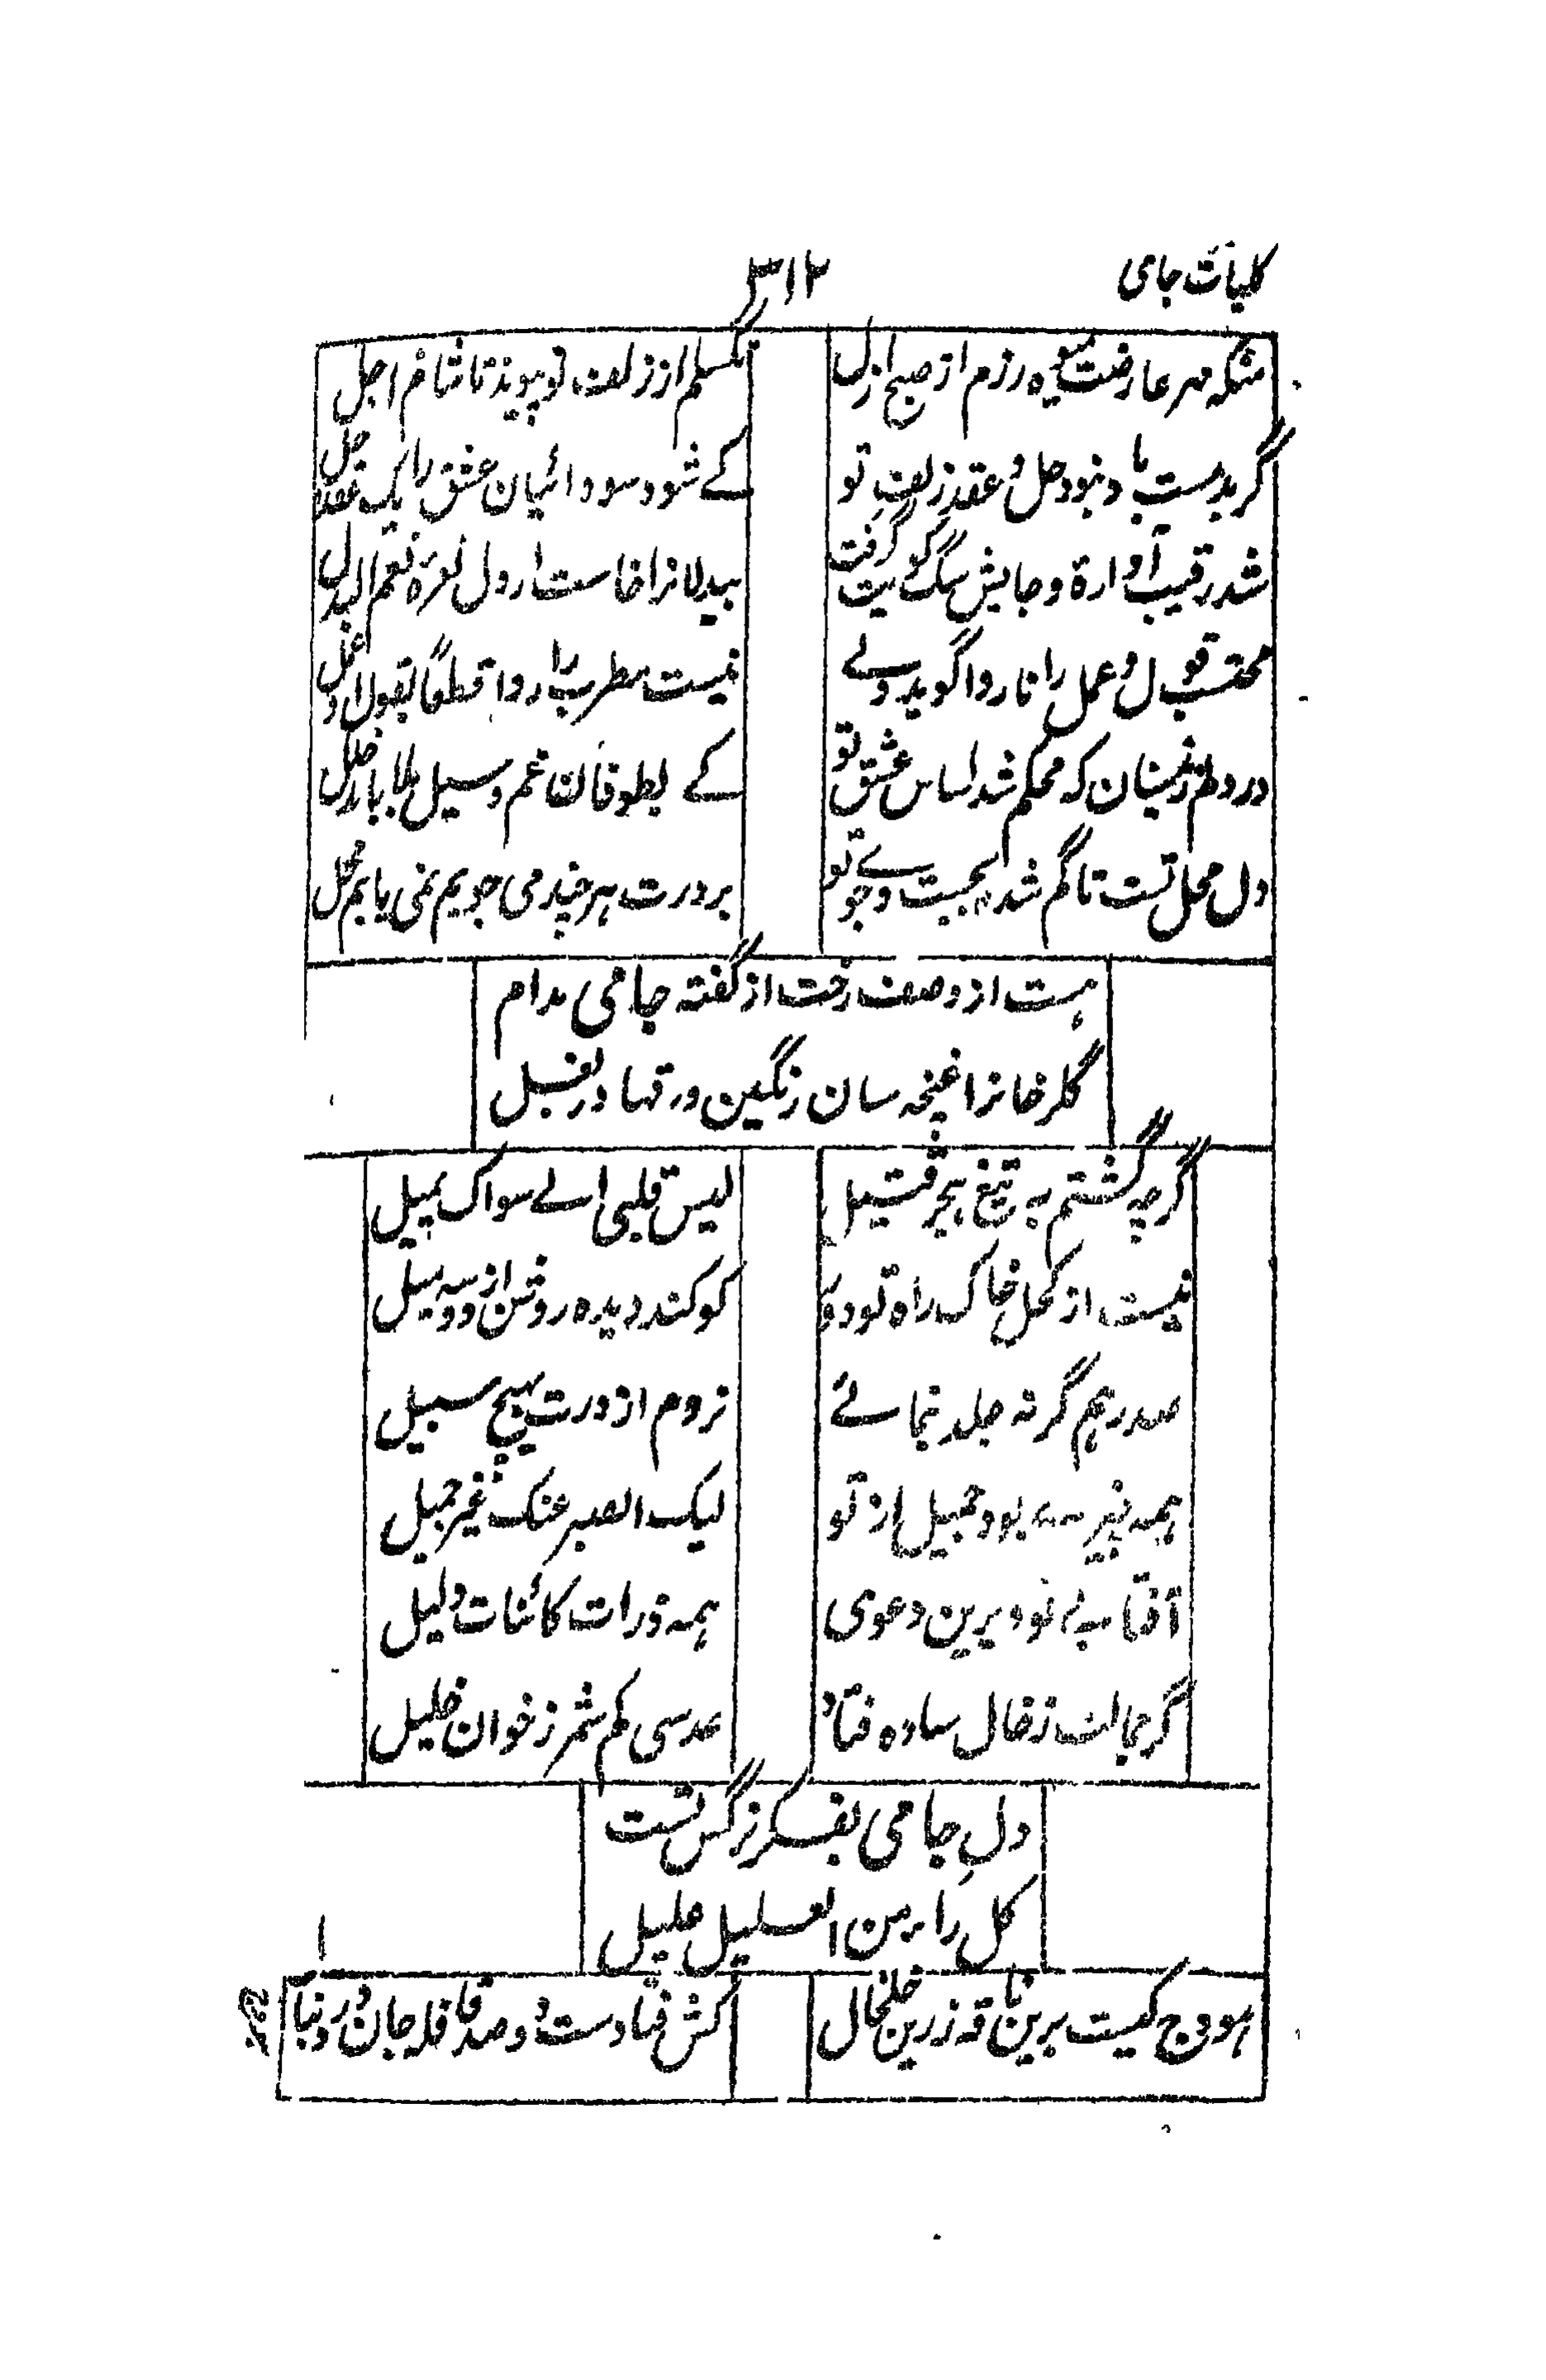 کلیات جامی
۳۱۲
منکه مهر عارضت میورزم از صبح ازل
نگسلم از زلف تو پیوند تا شام اجل
گر بدست باد نبود حل و عقد زلف تو
کے شود سودائیان عشق را یک عقده حل
شد رقیب آواره و جایش سگ کویت گرفت
بیدلانرا خاست از دل نعره نعم البدل
محتسب قول و عمل را ناروا گوید ولے
نیست مطرب را روا قطعاً بقول او عمل
در دلم زینسان که محکم شد اساس عشق تو
کے بطوفان غم و سیل بلا یابد خلل
دل محل تست تا گم شد بجست و جوے تو
بر درت هر چند می جویم نمی یابم محل
هست از وصف رخت از گفته جامی مدام
گلرخانرا غنچه سان رنگین ورقها در بغل
گرچه گشتم به تیغ هجر قتیل
لیس قلبی الے سواک یمیل
نیست از کحل خاک راه تو دور
کو کند دیده روشن از دو سه میل
صد رهم گر نه جلد بنمائے
نروم از درت بهیچ سبیل
همه چیزے بود جمیل از تو
لیک الصبر عنک غیر جمیل
آفتابے تو و برین دعوی
همه ذرات کائنات دلیل
گر جمالت ز خال ساده فتاد
عدسی کم شمر ز خوان خلیل
دل جامی بفکر نرگس تست
کل راء من العلیل علیل
هودج کیست برین ناقه زرین خلخال
کش فتادست دو صد قافله جان در دنبال